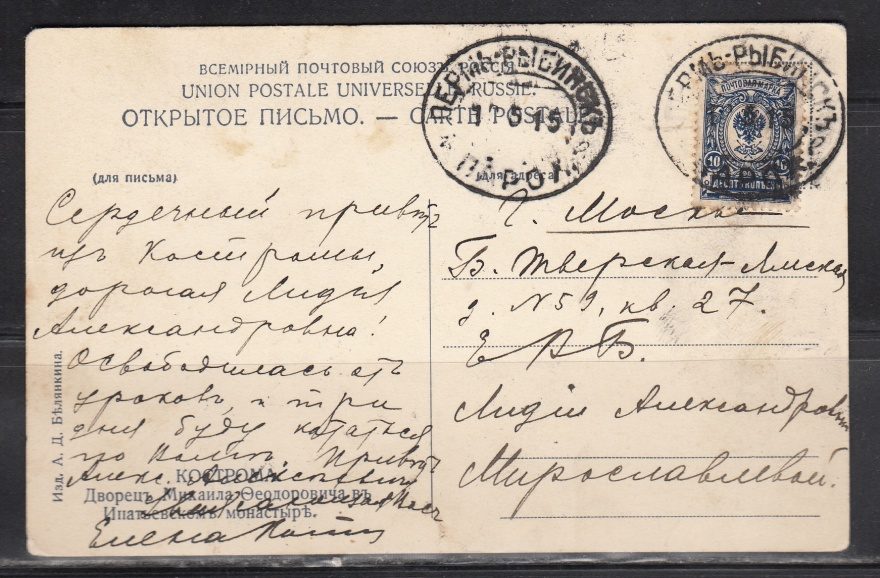 ВСЕМІРНЫЙ ПОЧТОВЫЙ СОЮЗЪ. РОССІЯ.
UNION POSTALE UNIVERSELLE. RUSSIE.
ОТКРЫТОЕ ПИСЬМО. — CARTE POSTALE.
ПЕРМЬ-РЫБИНСКЪ
15
ПАРОХ
ПЕРМЬ-РЫБИНСКЪ
15
ПОЧТОВАЯ МАРКА
10 10
ДЕСЯТЬ КОПѢЕКЪ
(для письма)
(для адреса)
Сердечный привѣтъ
изъ Костромы,
дорогая Лидія
Александровна!
Освободилась отъ
уроковъ и три
дня буду кататься
по Волгѣ. Привѣтъ
Алекс. Алексѣевичу
Елена
Г. Москва
Б. Тверская-Ямская
д. N 59, кв. 27.
Е В Б.
Лидіи Александровнѣ
Мирославлевой.
КОСТРОМА.
Дворецъ Михаила Ѳеодоровича въ
Ипатьевскомъ монастырѣ.
Изд. А. Д. Бѣлянкина.